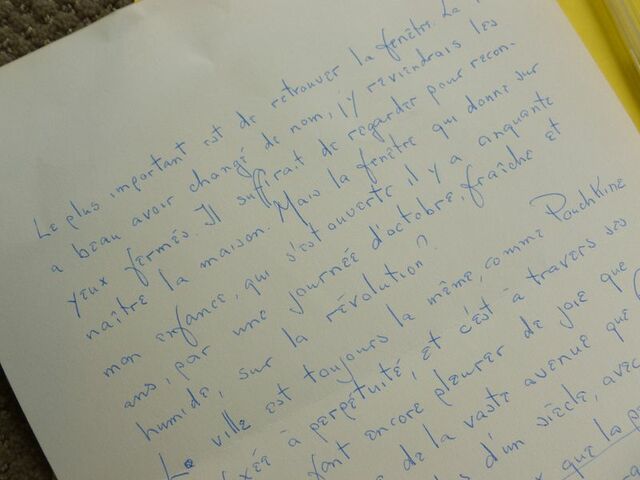 Le plus important est de retrouver la fenêtre. La
a beau avoir changé de nom, j'y reviendrais les
yeux fermés. Il suffirait de regarder pour recon-
naître la maison. Mais la fenêtre qui donne sur
mon enfance, qui s'est ouverte il y a cinquante
ans, par une journée d'octobre, fraîche et
humide, sur la révolution?
La ville est toujours la même, comme Pouchkine
à perpétuité, et c'est à travers ses
font encore pleurer de joie que
de la vaste avenue que
d'un siècle, avec
que la